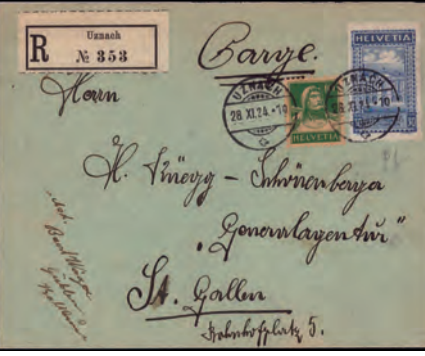 R
Uznach
№ 353
Charge.
HELVETIA
UZNACH
28.XI.24.-10
HELVETIA
UZNACH
28.XI.24.-10
Herrn
H. Rüegg-Schönenberger
„Generalagentur"
St. Gallen
Bahnhofplatz 5.